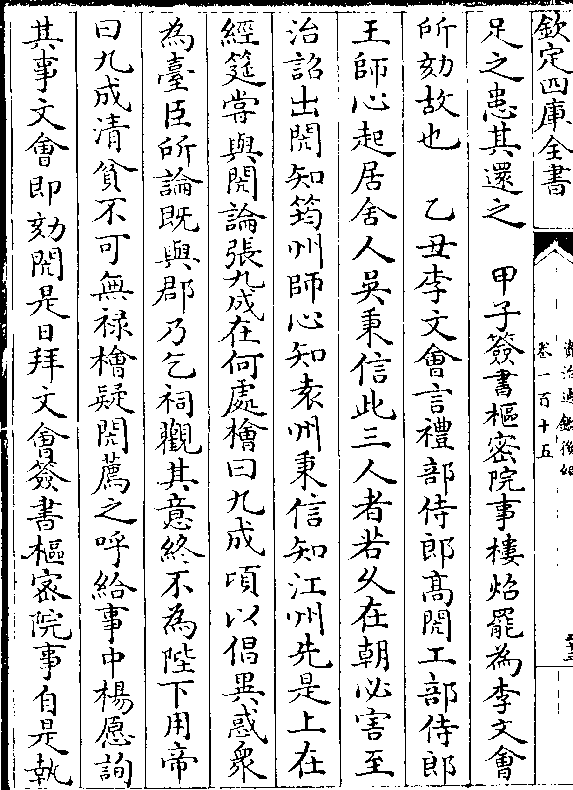 欽定四庫全書
資治通鑑後編
卷一百十五
足之患其還之　甲子簽書樞密院事樓炤罷為李文會
所劾故也　乙丑李文會言禮部侍郎高閌工部侍郎
王師心起居舍人吳秉信此三人者若久在朝必害至
治詔出閌知筠州師心知袁州秉信知江州先是上在
經筵嘗與閌論張九成在何處檜曰九成頃以倡異惑衆
為臺臣所論既與郡乃乞祠觀其意終不為陛下用帝
曰九成清貧不可無祿檜疑閌薦之呼給事中楊愿詢
其事文會即劾閌是日拜文會簽書樞密院事自是執